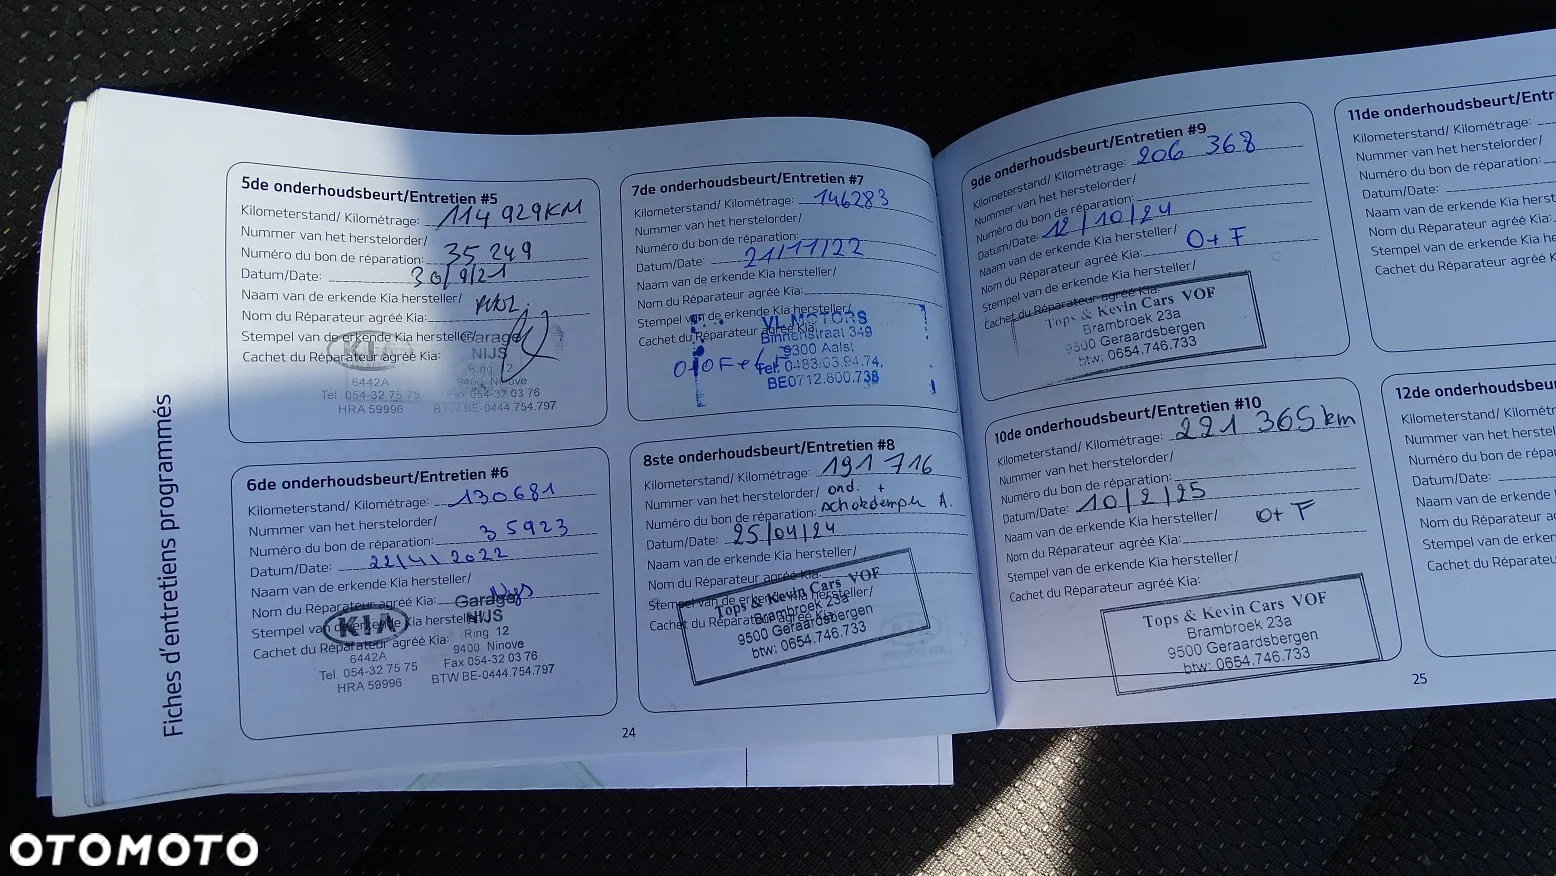 Fiches d'entretiens programmés
5de onderhoudsbeurt/Entretien #5
Kilometerstand/ Kilométrage: 114 929KM
Nummer van het herstelorder/
Numéro du bon de réparation: 35 249
Datum/Date: 30/9/21
Naam van de erkende Kia hersteller/
Nom du Réparateur agréé Kia:
Stempel van de erkende Kia hersteller/
Cachet du Réparateur agréé Kia:
KIA
Garage
NIJS
Ring 12
6442A
9400 Ninove
Tel. 054-32 75 75
Fax 054-32 03 76
HRA 59996
BTW BE-0444.754.797
6de onderhoudsbeurt/Entretien #6
Kilometerstand/ Kilométrage: 130681
Nummer van het herstelorder/
Numéro du bon de réparation: 35923
Datum/Date: 22/4/2022
Naam van de erkende Kia hersteller/
Nom du Réparateur agréé Kia: Nys
Stempel van de erkende Kia hersteller/
Cachet du Réparateur agréé Kia:
KIA
Garage
NIJS
Ring 12
6442A
9400 Ninove
Tel. 054-32 75 75
Fax 054-32 03 76
HRA 59996
BTW BE-0444.754.797
7de onderhoudsbeurt/Entretien #7
Kilometerstand/ Kilométrage: 146283
Nummer van het herstelorder/
Numéro du bon de réparation:
Datum/Date: 21/11/22
Naam van de erkende Kia hersteller/
Nom du Réparateur agréé Kia:
Stempel van de erkende Kia hersteller/
Cachet du Réparateur agréé Kia:
VL MOTORS
Binnenstraat 349
9300 Aalst
Tel: 0483/03.94.74.
BE0712.800.738
8ste onderhoudsbeurt/Entretien #8
Kilometerstand/ Kilométrage: 191 716
Nummer van het herstelorder/ ond. +
Numéro du bon de réparation: schokdemper A.
Datum/Date: 25/04/24
Naam van de erkende Kia hersteller/
Nom du Réparateur agréé Kia:
Stempel van de erkende Kia hersteller/
Cachet du Réparateur agréé Kia:
Tops & Kevin Cars VOF
Brambroek 23a
9500 Geraardsbergen
btw: 0654.746.733
24
9de onderhoudsbeurt/Entretien #9
Kilometerstand/ Kilométrage: 206 368
Nummer van het herstelorder/
Numéro du bon de réparation:
Datum/Date: 12/10/24
Naam van de erkende Kia hersteller/
Nom du Réparateur agréé Kia: O+F
Stempel van de erkende Kia hersteller/
Cachet du Réparateur agréé Kia:
Tops & Kevin Cars VOF
Brambroek 23a
9500 Geraardsbergen
btw: 0654.746.733
10de onderhoudsbeurt/Entretien #10
Kilometerstand/ Kilométrage: 221 365 km
Nummer van het herstelorder/
Numéro du bon de réparation:
Datum/Date: 10/2/25
Naam van de erkende Kia hersteller/ O+F
Nom du Réparateur agréé Kia:
Stempel van de erkende Kia hersteller/
Cachet du Réparateur agréé Kia:
Tops & Kevin Cars VOF
Brambroek 23a
9500 Geraardsbergen
btw: 0654.746.733
25
11de onderhoudsbeurt/Entr
Kilometerstand/ Kilométrage:
Nummer van het herstelorder/
Numéro du bon de réparation:
Datum/Date:
Naam van de erkende Kia herst
Nom du Réparateur agréé Kia:
Stempel van de erkende Kia he
Cachet du Réparateur agréé K
12de onderhoudsbeu
Kilometerstand/ Kilomét
Nummer van het herstel
Numéro du bon de répa
Datum/Date:
Naam van de erkende
Nom du Réparateur ag
Stempel van de erken
Cachet du Réparateu
OTOMOTO